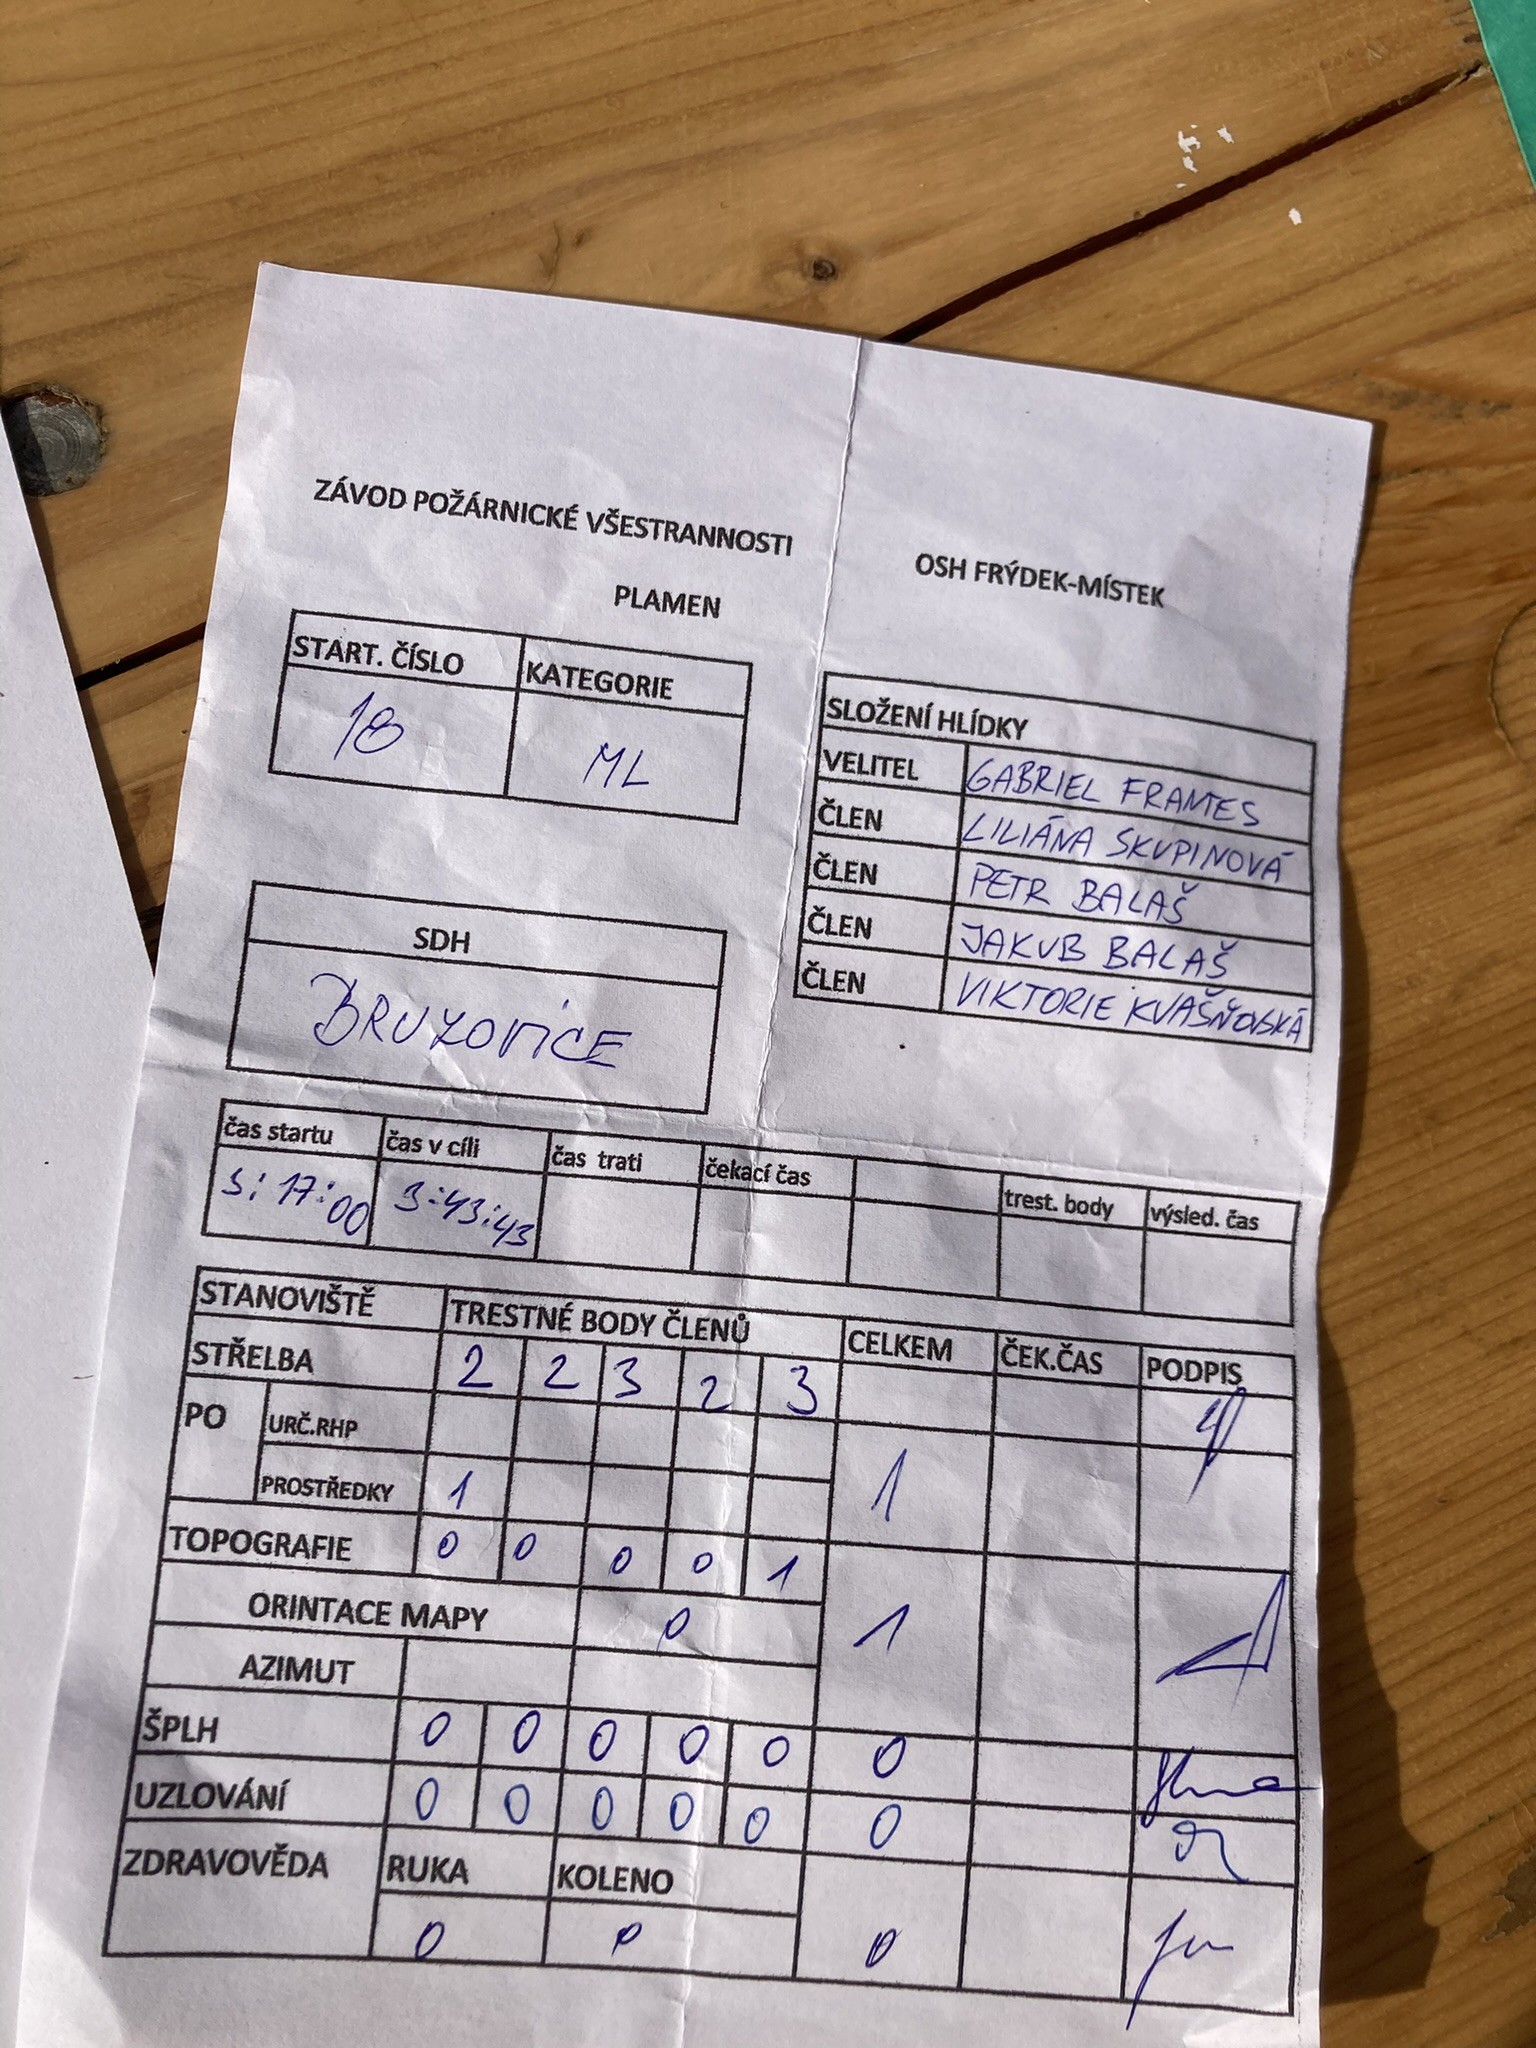 ZÁVOD POŽÁRNICKÉ VŠESTRANNOSTI
OSH FRÝDEK-MÍSTEK
PLAMEN
START. ČÍSLO KATEGORIE
18 ML
SLOŽENÍ HLÍDKY
VELITEL GABRIEL FRANTES
ČLEN LILIÁNA SKUPINOVÁ
ČLEN PETR BALAŠ
ČLEN JAKUB BALAŠ
ČLEN VIKTORIE KVAŠŇOVSKÁ
SDH
BRUZOVICE
čas startu čas v cíli čas trati čekací čas trest. body výsled. čas
3:17:00 3:43:43
STANOVIŠTĚ TRESTNÉ BODY ČLENŮ CELKEM ČEK.ČAS PODPIS
STŘELBA 2 2 3 2 3
PO URČ.RHP
PROSTŘEDKY 1 1
TOPOGRAFIE 0 0 0 0 1
ORINTACE MAPY 0 1
AZIMUT
ŠPLH 0 0 0 0 0 0
UZLOVÁNÍ 0 0 0 0 0 0
ZDRAVOVĚDA RUKA KOLENO
0 0 0